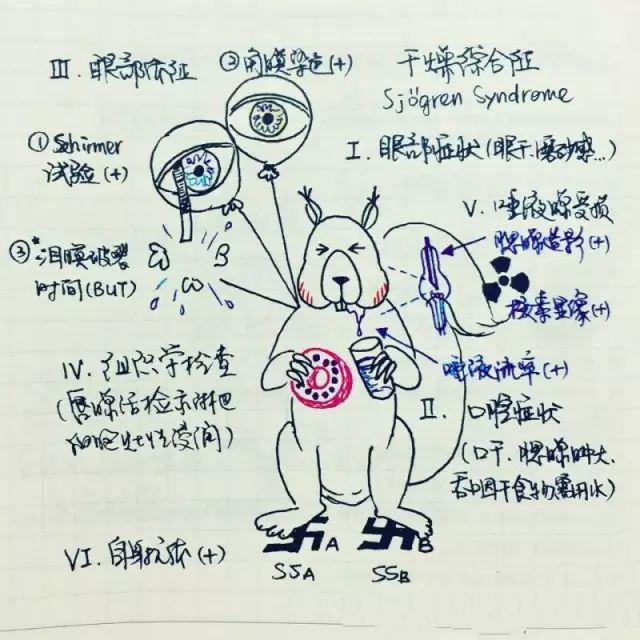 干燥综合征
Sjögren Syndrome
I. 眼部症状 (眼干、磨砂感...)
II. 口腔症状
(口干、腮腺肿大、
吞咽干食物需用水)
III. 眼部体征
① Schirmer
试验 (+)
② 角膜染色 (+)
③* 泪膜破裂
时间 (BUT)
B
IV. 组织学检查
(唇腺活检示淋巴
细胞灶性浸润)
V. 唾液腺受损
腮腺造影 (+)
核素显像 (+)
唾液流率 (+)
VI. 自身抗体 (+)
A
B
SSA
SSB